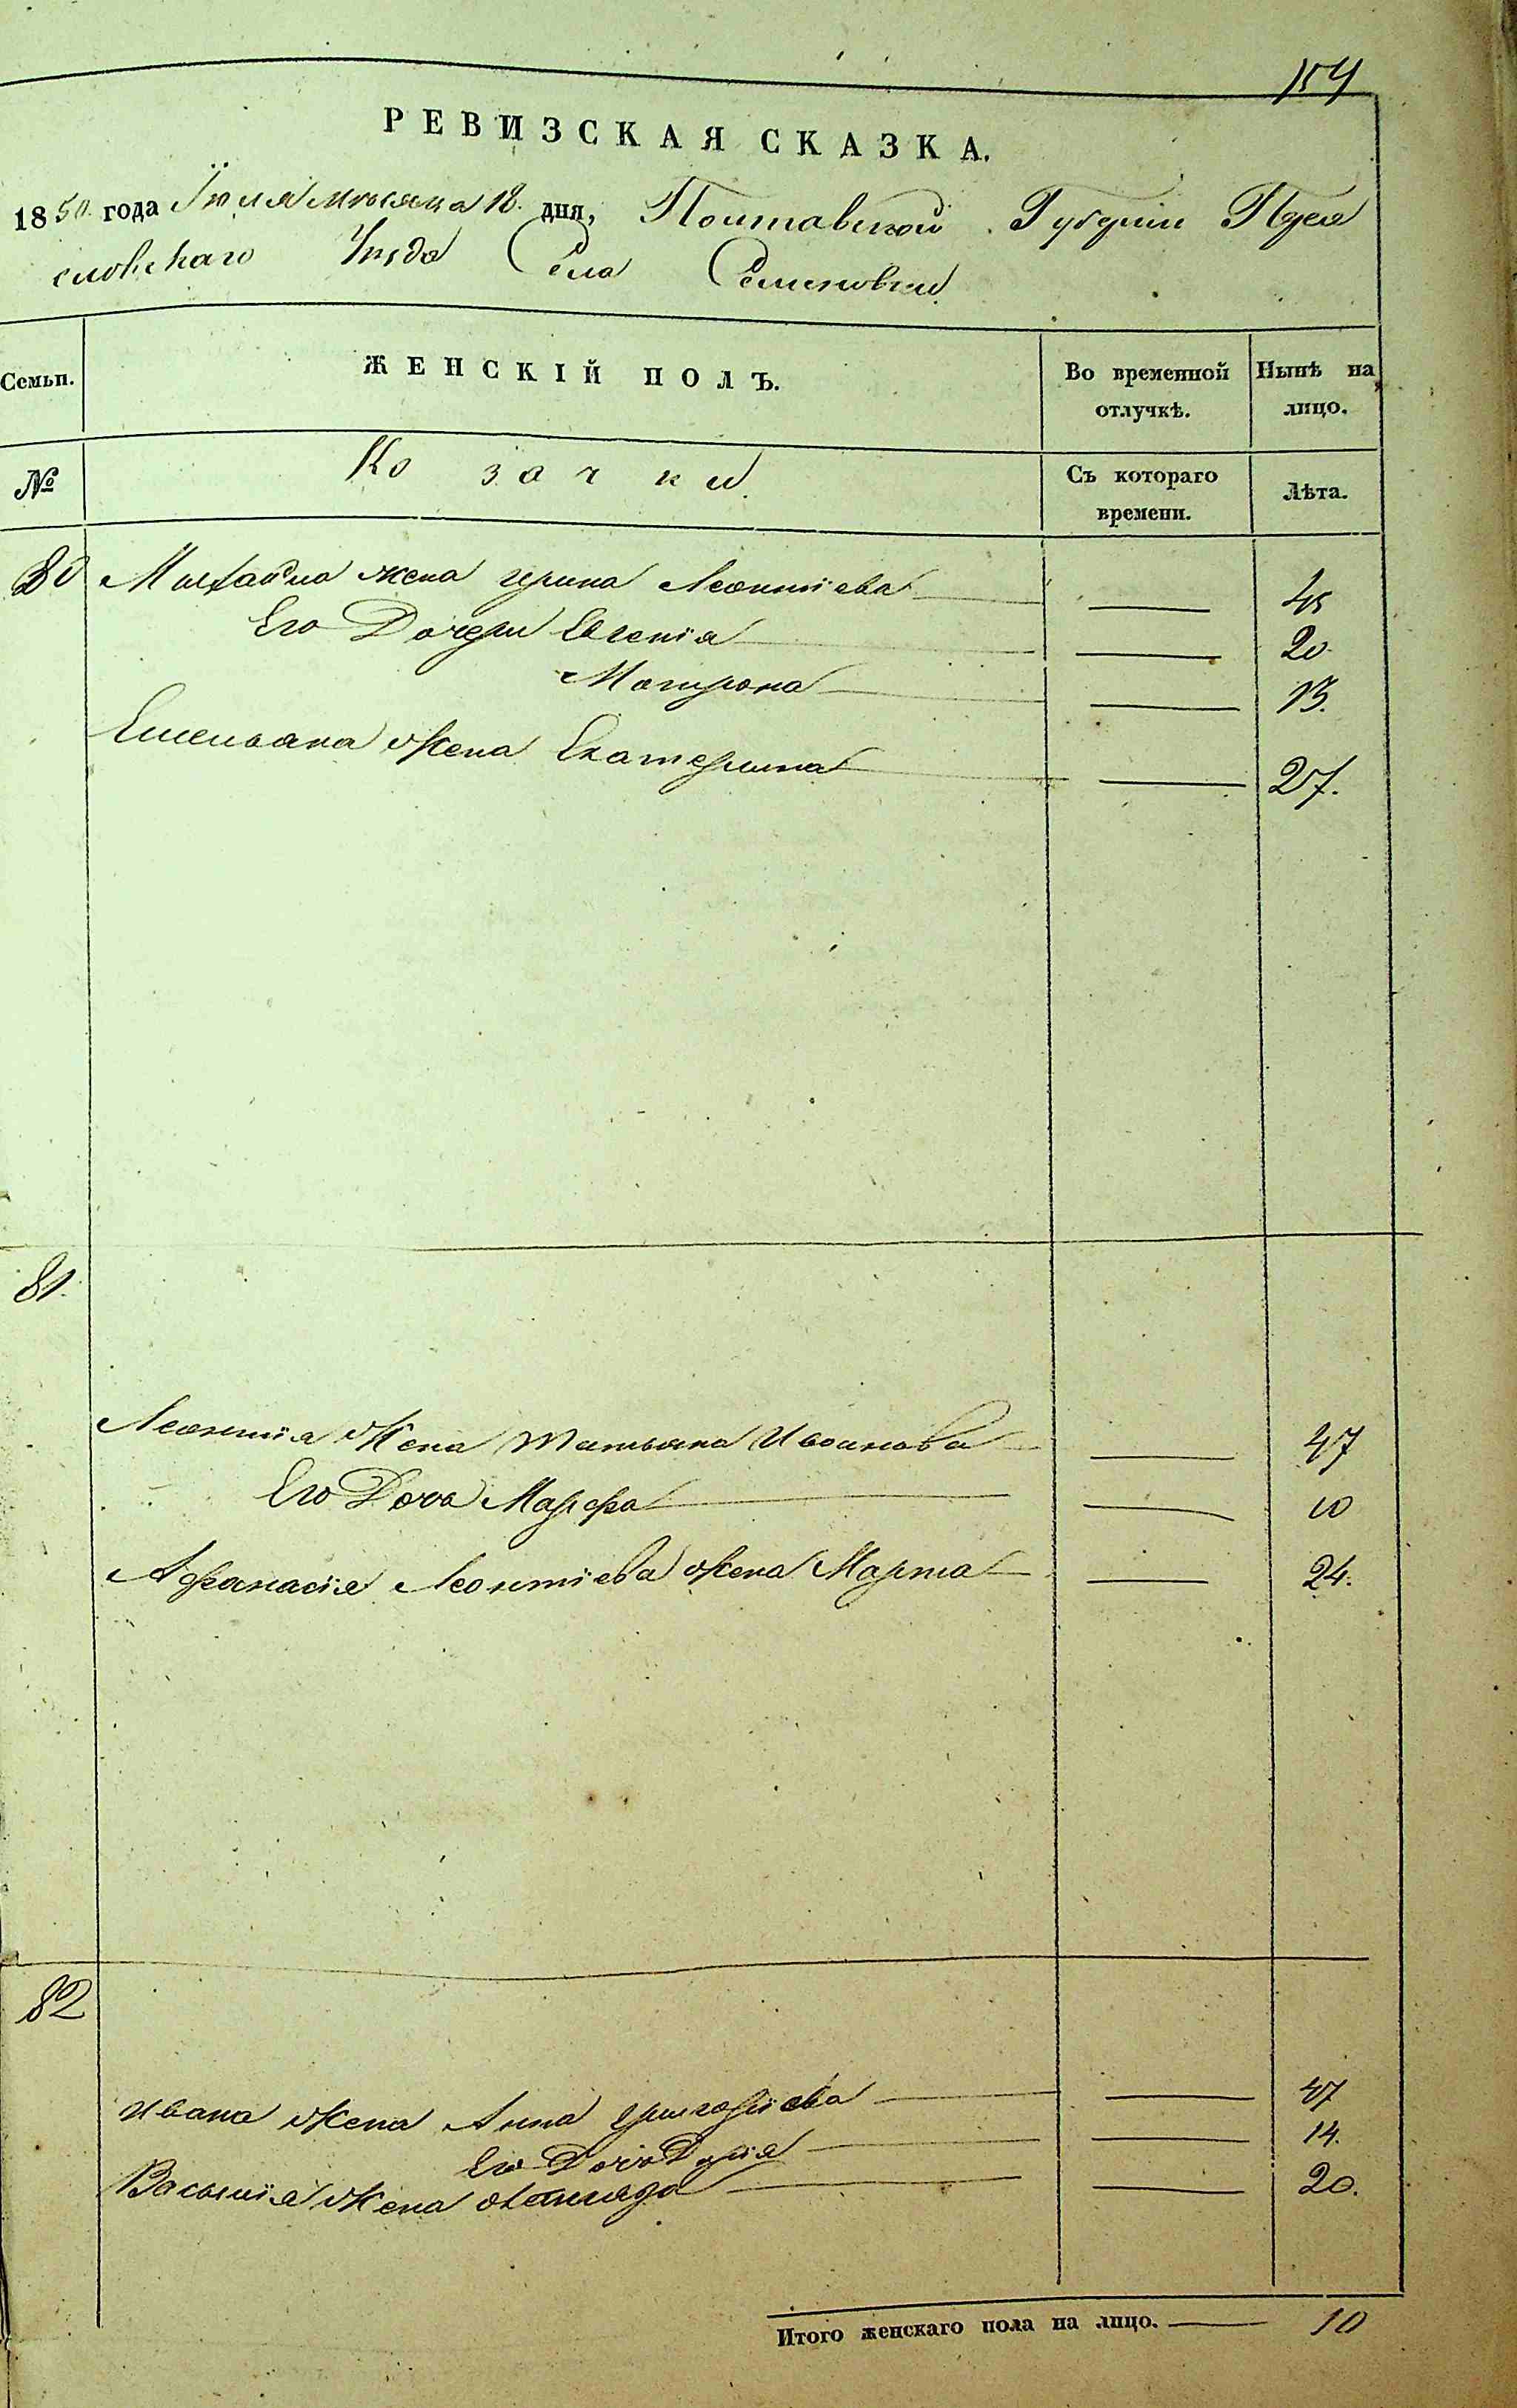 154
РЕВИЗСКАЯ СКАЗКА.
1850 года Іюля месяца 18. дня, Полтавской Губерніи Перея
словскаго Уезда Села Семеновки
Семьи. ЖЕНСКІЙ ПОЛЪ. Во временной отлучкѣ. Нынѣ на лицо.
№ Козачки Съ котораго времени. Лѣта.
80 Михайла жена Ирина Леонтіева 45
Его Дочери Евгенія 20
Матрона 13.
Емельяна Жена Екатерина 27.
81.
Леонтія Жена Татьяна Иванова 47
Его Дочь Марфа 10
Афанасія Леонтіева Жена Марта 24.
82
Ивана Жена Анна Григоріева 47
Его Дочь Дарія 14.
Василія Жена 20.
Итого женскаго пола на лицо. 10